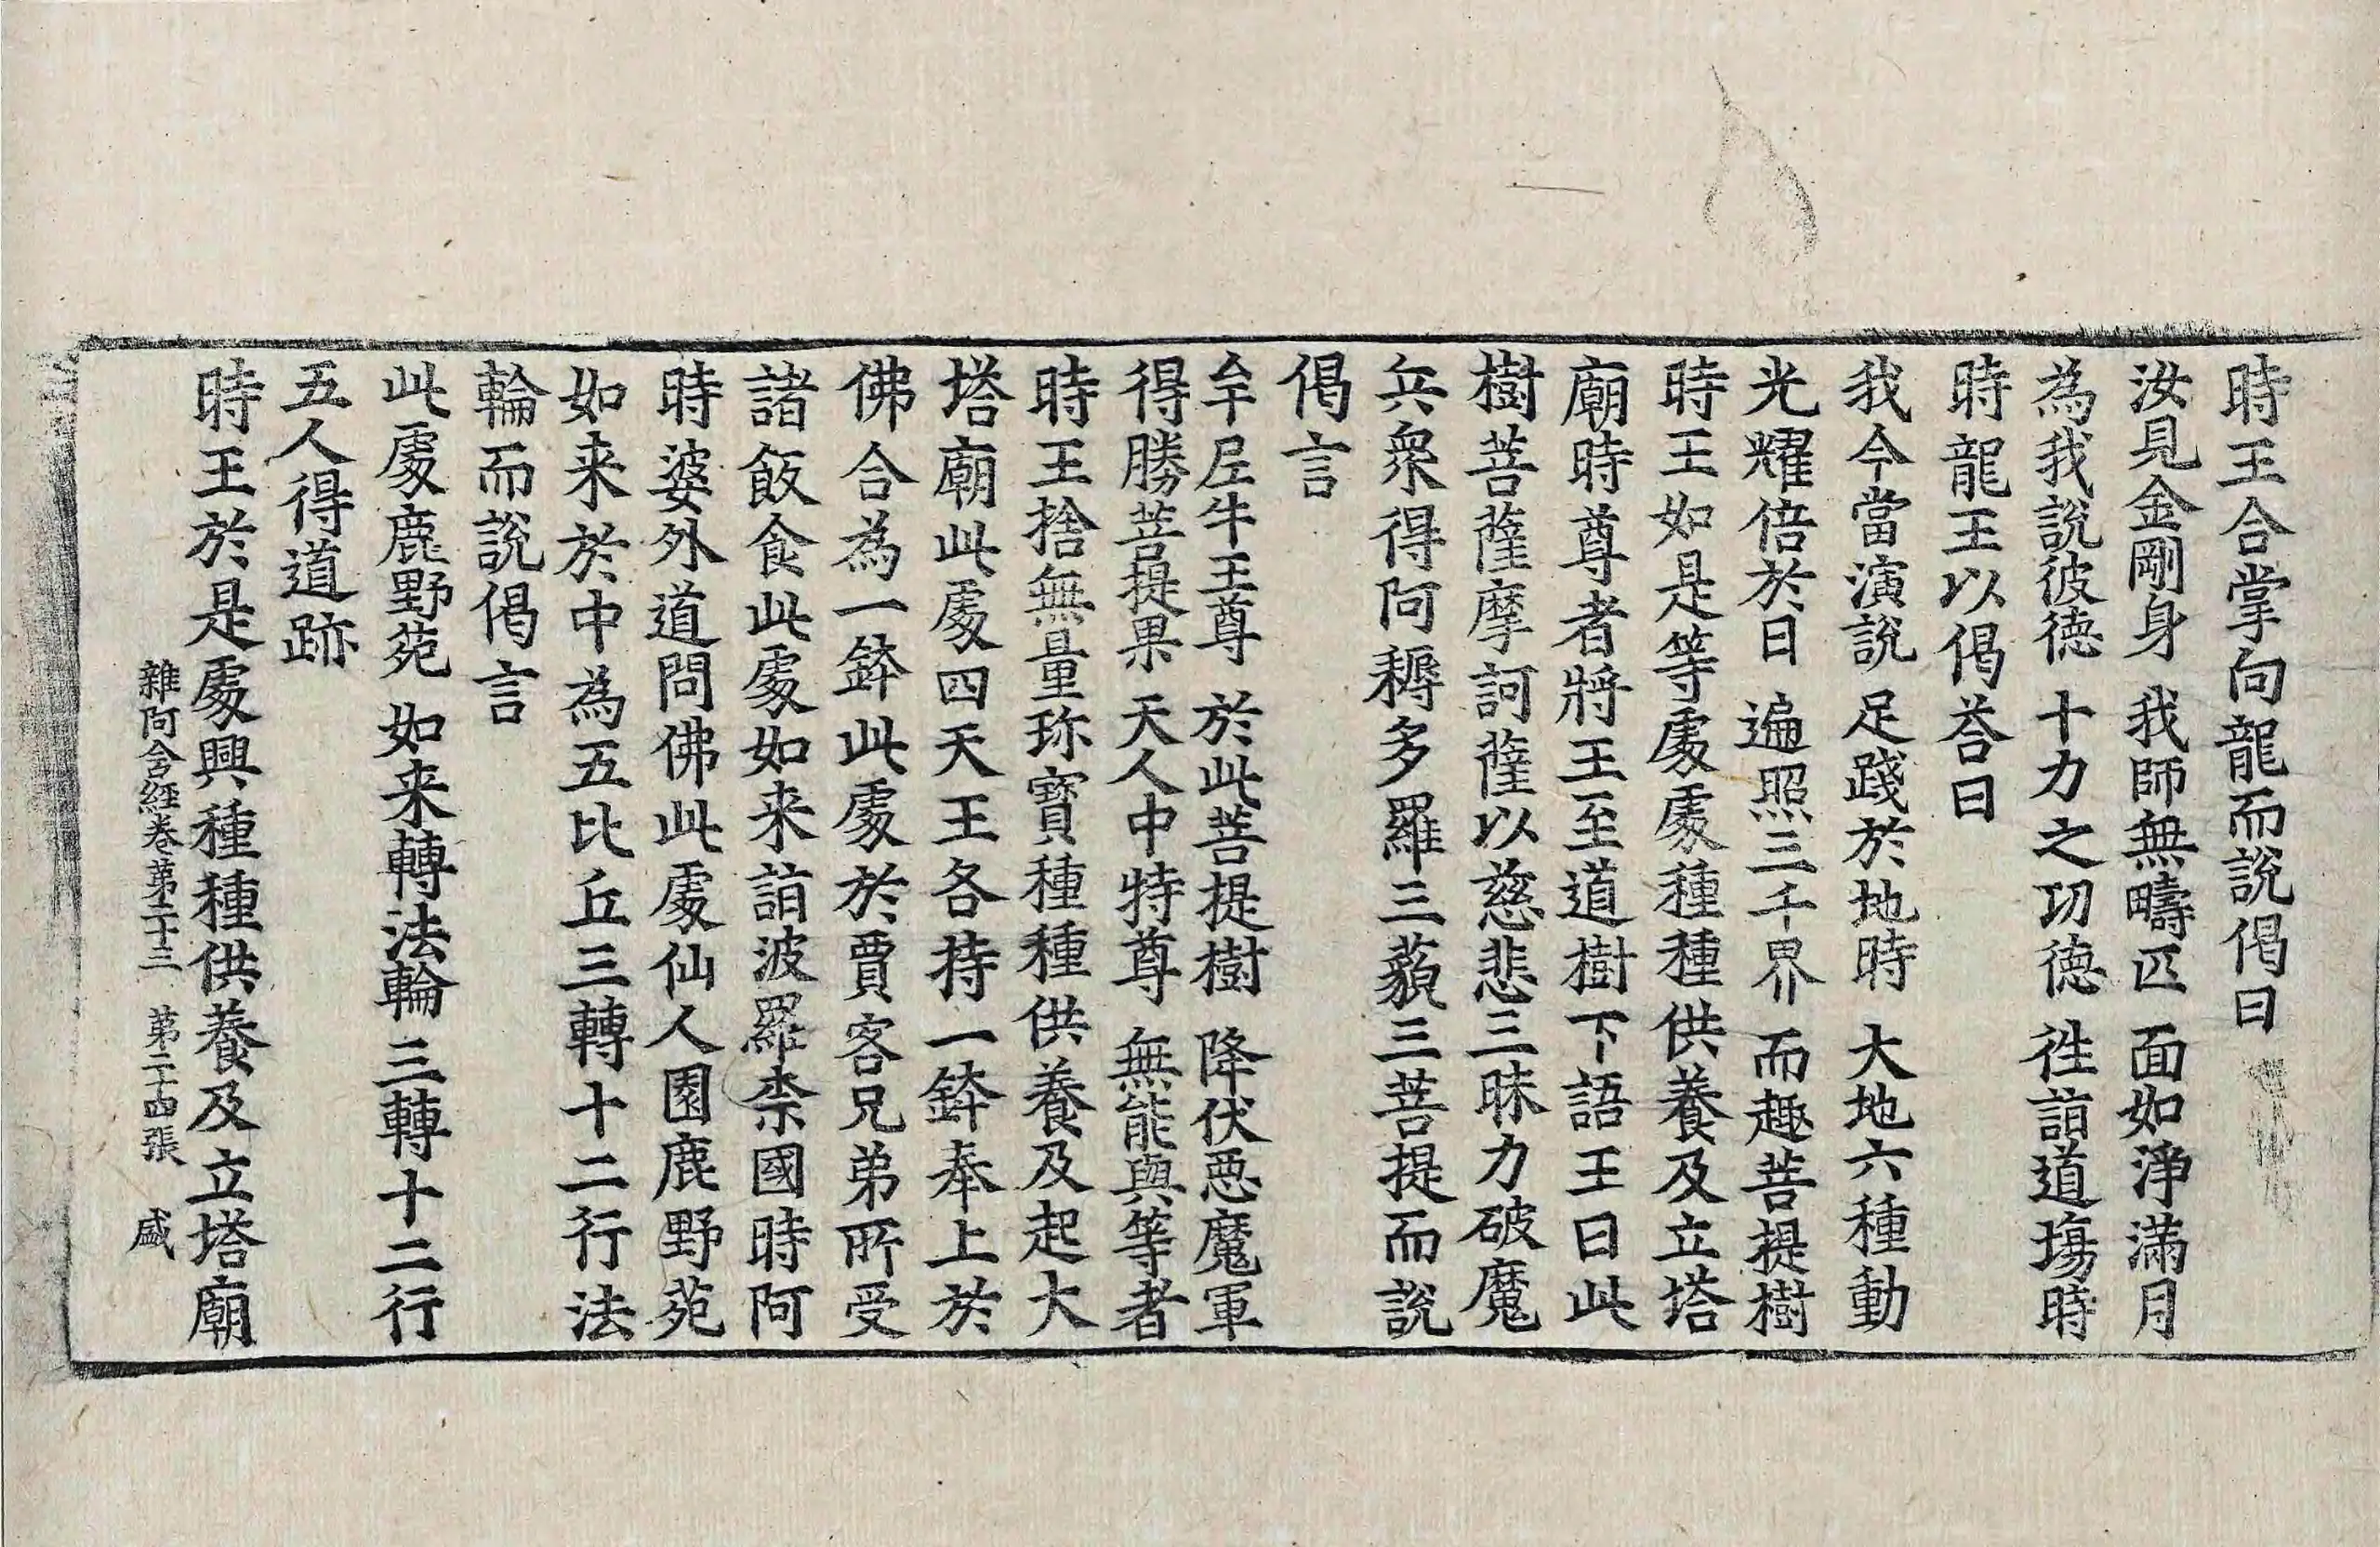 時王合掌向龍而說偈曰
汝見金剛身　我師無疇匹　面如淨滿月
為我說彼德　十力之功德　徃詣道場時
時龍王以偈荅曰
我今當演說　足踐於地時　大地六種動
光耀倍於日　遍照三千界　而趣菩提樹
時王如是等處處種種供養及立塔
廟時尊者將王至道樹下語王曰此
樹菩薩摩訶薩以慈悲三昧力破魔
兵衆得阿耨多羅三藐三菩提而說
偈言
牟尼牛王尊　於此菩提樹　降伏惡魔軍
得勝菩提果　天人中特尊　無能與等者
時王捨無量珎寶種種供養及起大
塔廟此處四天王各持一鉢奉上於
佛合為一鉢此處於賈客兄弟所受
諸飯食此處如来詣波羅柰國時阿
時婆外道問佛此處仙人園鹿野苑
如来於中為五比丘三轉十二行法
輪而說偈言
此處鹿野苑　如来轉法輪　三轉十二行
五人得道跡
時王於是處興種種供養及立塔廟
雜阿含經卷第二十三　第二十四張　盛